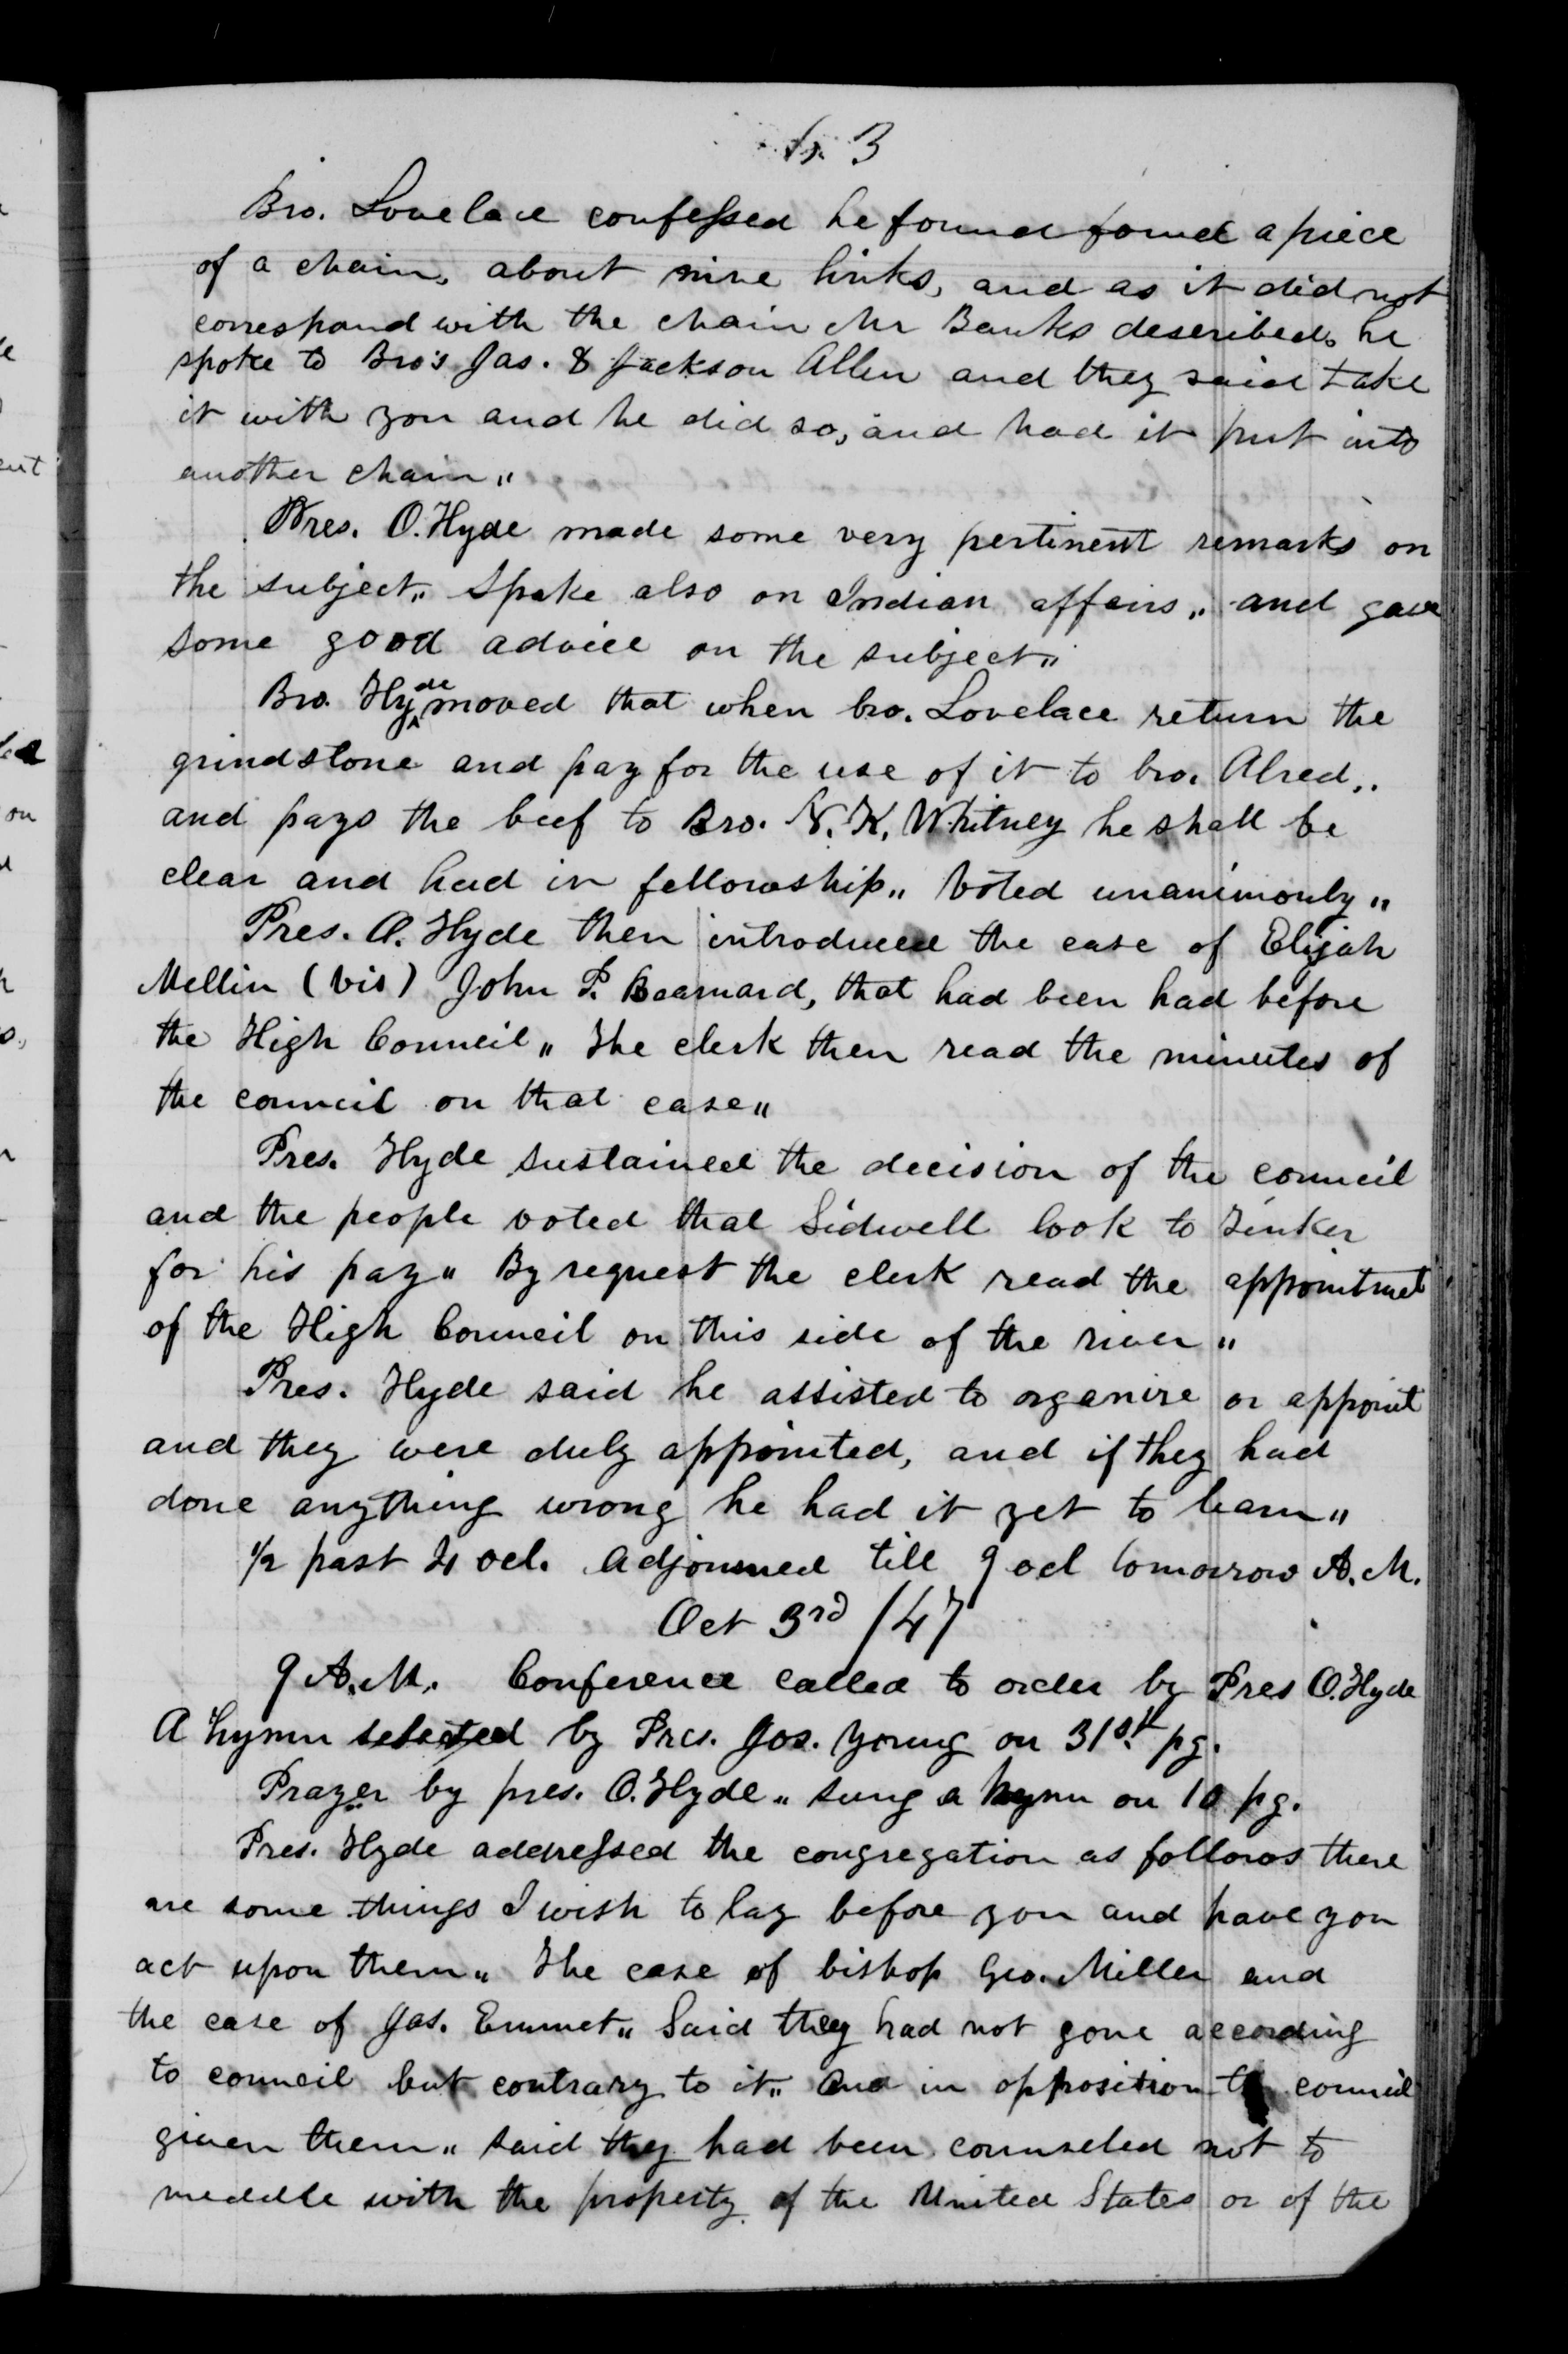 3
Bro. Lovelace confessed he found found a piece
of a chain, about nine links, and as it did not
correspond with the chain Mr Banks described, he
spoke to Bro's Jas. & Jackson Allen and they said take
it with you and he did so, and had it put into
another chain"
Pres. O. Hyde made some very pertinent remarks on
the subject" Spoke also on Indian affairs" and gave
some good advice on the subject"
Bro. Hyde moved that when bro. Lovelace return the
grindstone and pay for the use of it to bro. Alred"
and pays the beef to Bro. N. K. Whitney he shall be
clear and had in fellowship" Voted unanimously"
Pres. O. Hyde then introduced the case of Elijah
Mellin (vis) John P. Baarnard, that had been had before
the High Council" The clerk then read the minutes of
the council on that case"
Pres. Hyde sustained the decision of the council
and the people voted that Sidwell look to Tinker
for his pay" By request the clerk read the appointmet
of the High Council on this side of the river"
Pres. Hyde said he assisted to organize or appoint
and they were duly appointed, and if they had
done anything wrong he had it yet to learn"
½ past 4 ocl. Adjourned till 9 ocl tomorrow A.M.
Oct 3rd /47
9 A.M. Conference called to order by Pres O. Hyde
A hymn selected by Pres. Jos. Young on 31st pg.
Prayer by pres. O. Hyde" sung a hymn on 10 pg.
Pres. Hyde addressed the congregation as follows there
are some things I wish to lay before you and have you
act upon them" The case of bishop Geo. Miller and
the case of Jas. Emmet" Said they had not gone according
to council but contrary to it" And in opposition to council
given them" said they had been counseled not to
meddle with the property of the United States or of the